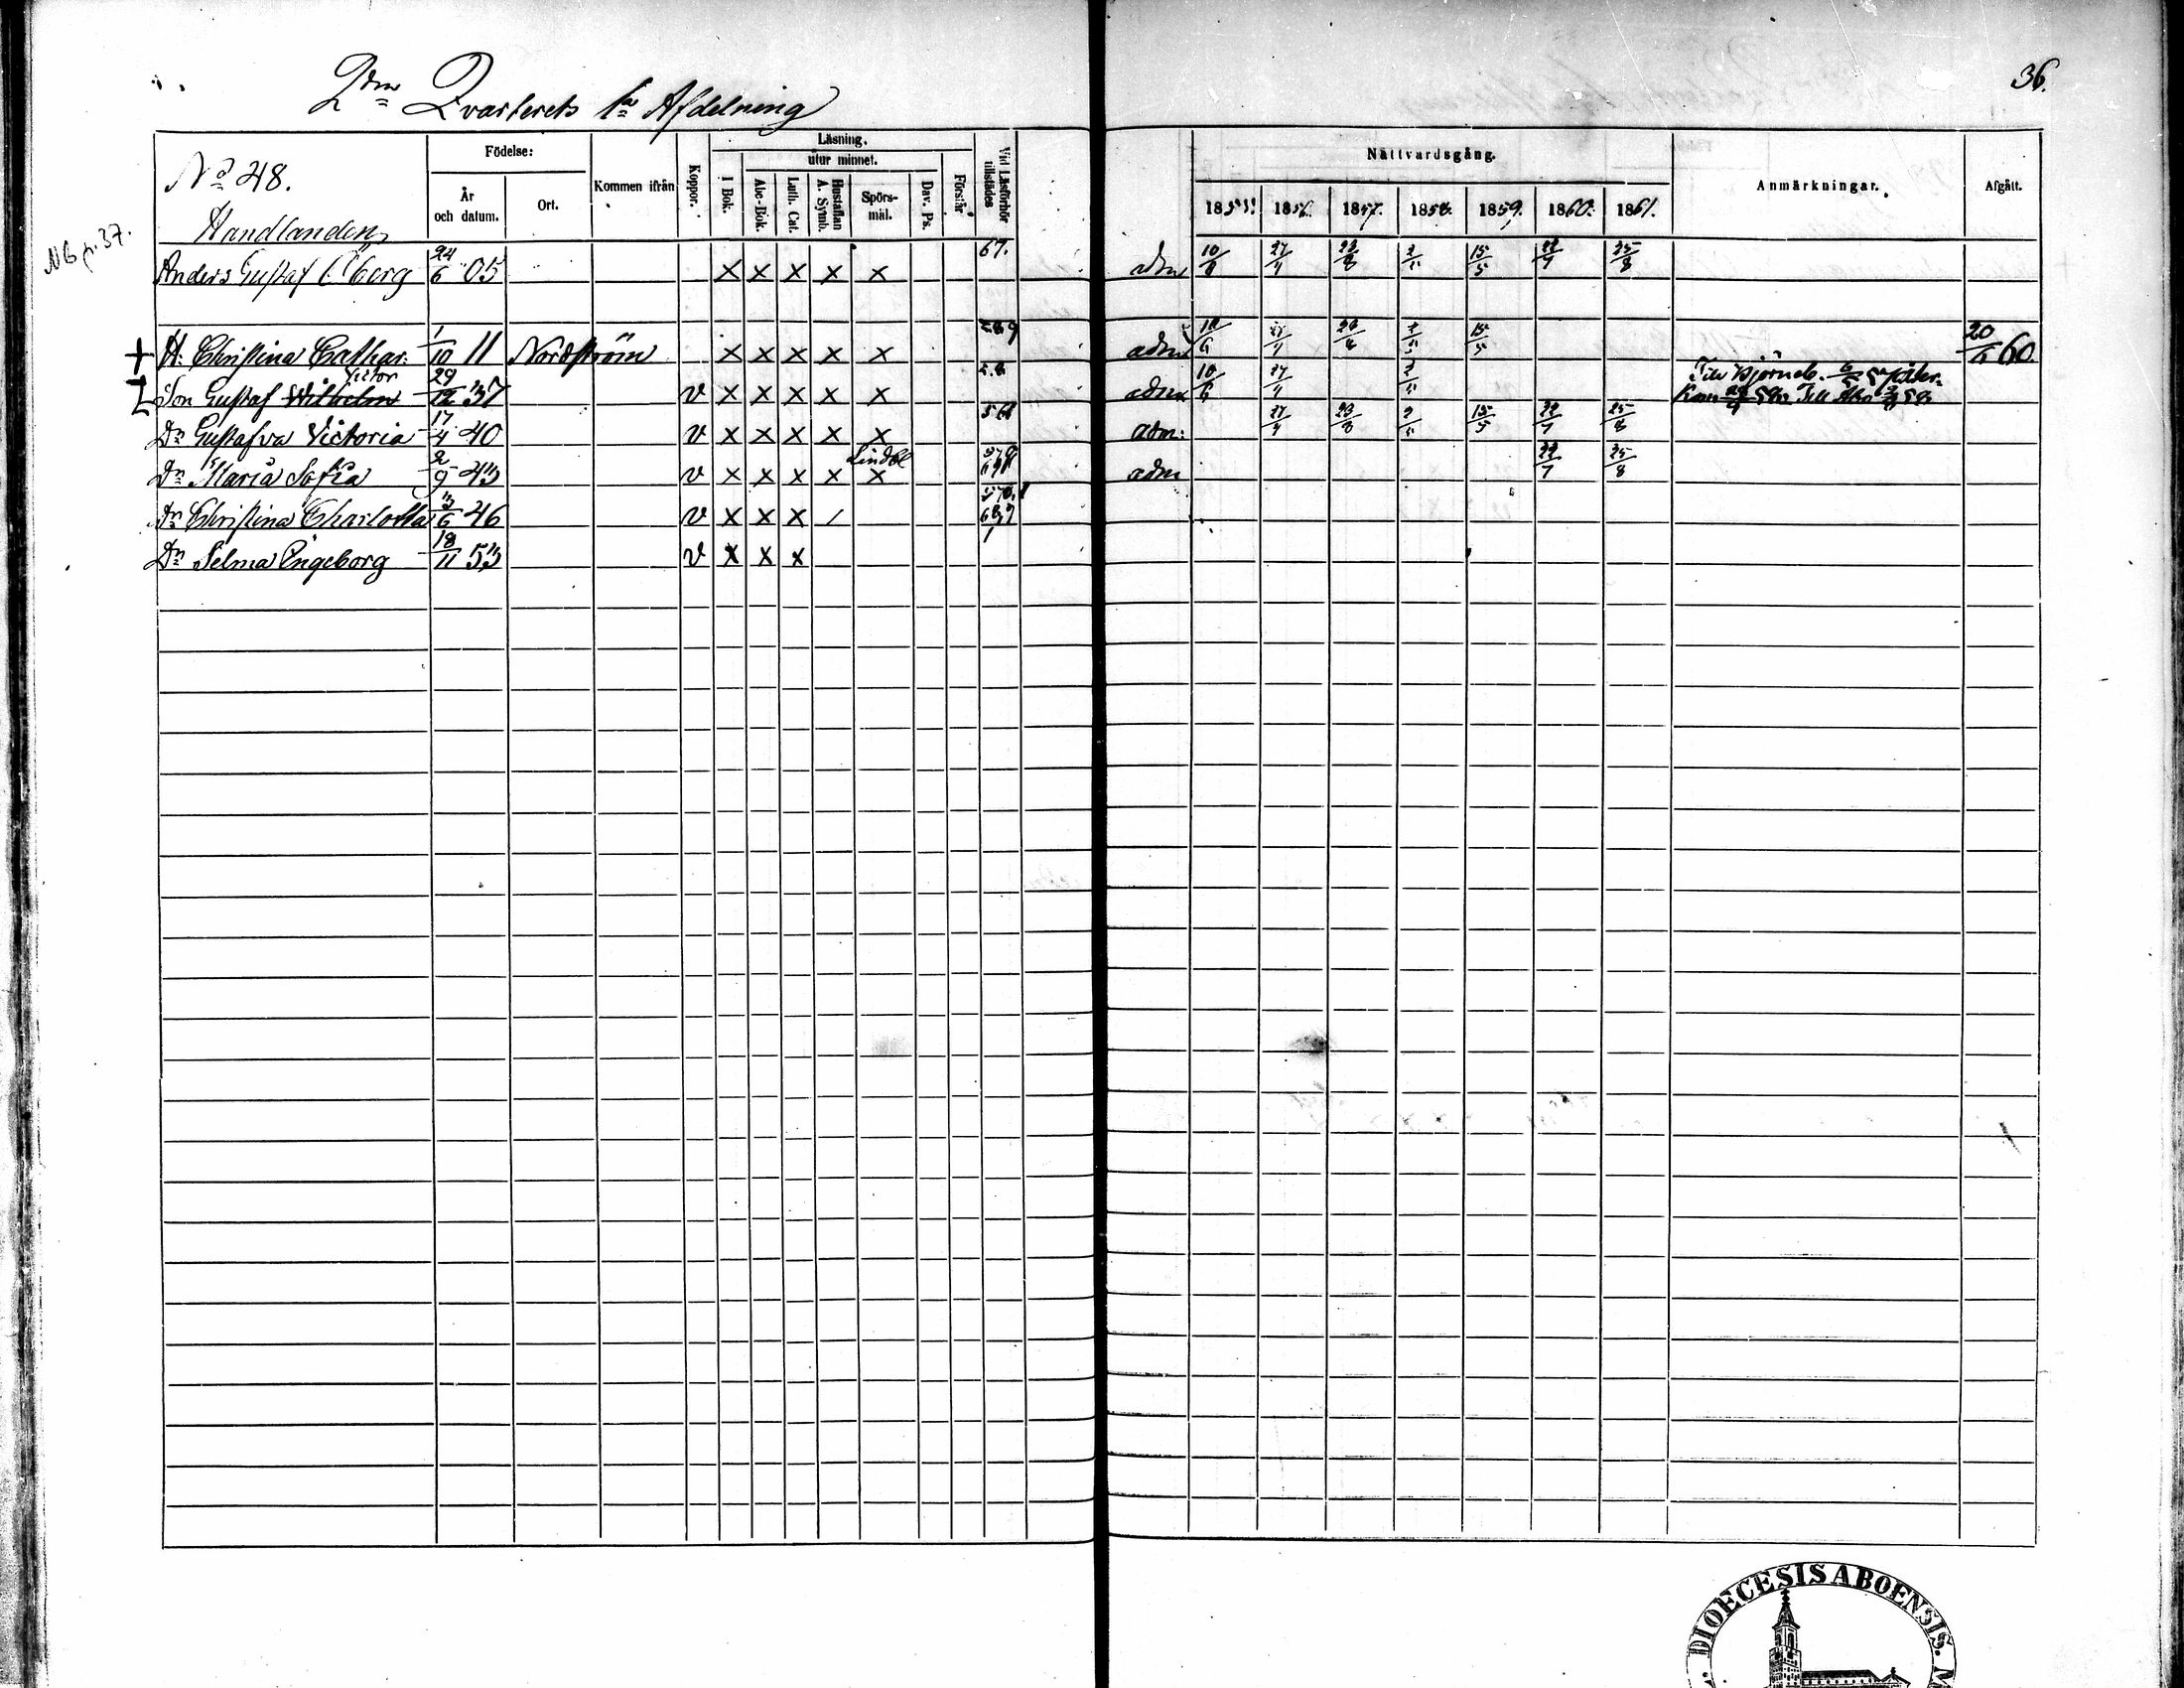 36.
2dra Qvarterets 1a Afdelning
No 48.
Födelse:
År och datum.
Ort.
Kommen ifrån
Koppor.
Läsning.
utur minnet.
I Bok.
Abc-Bok.
Luth. Cat.
Hustaflan A. Symb.
Spörs-mål.
Dav. Ps.
Förstår
Vid Läsförhör tillstädes
Nattvardsgång.
1855. 1856. 1857. 1858. 1859. 1860. 1861.
Anmärkningar.
Afgått.
NB p. 37.
Handlanden
Anders Gustaf Öberg 24/6 05 x x x x x 67. adm 10/6 27/4 23/8 2/5 15/5 22/7 25/8
+ H. Christina Cathar. 1/10 11 Nordström x x x x x adm 10/6 27/4 23/8 2/5 15/5 20/4 60.
Son Gustaf Wilhelm Victor 29/12 37 v x x x x x adm 10/6 27/4 2/5 Till Björneb.
Dr Gustafva Victoria 17/4 40 v x x x x x adm: 27/4 23/8 2/5 15/5 22/7 25/8
Dr Maria Sofia 2/9 43 v x x x x x adm 22/7 25/8
Dr Christina Charlotta 3/6 46 v x x x /
Dr Selma Ingeborg 18/11 53 v x x x
DIOECESIS ABOENSIS.